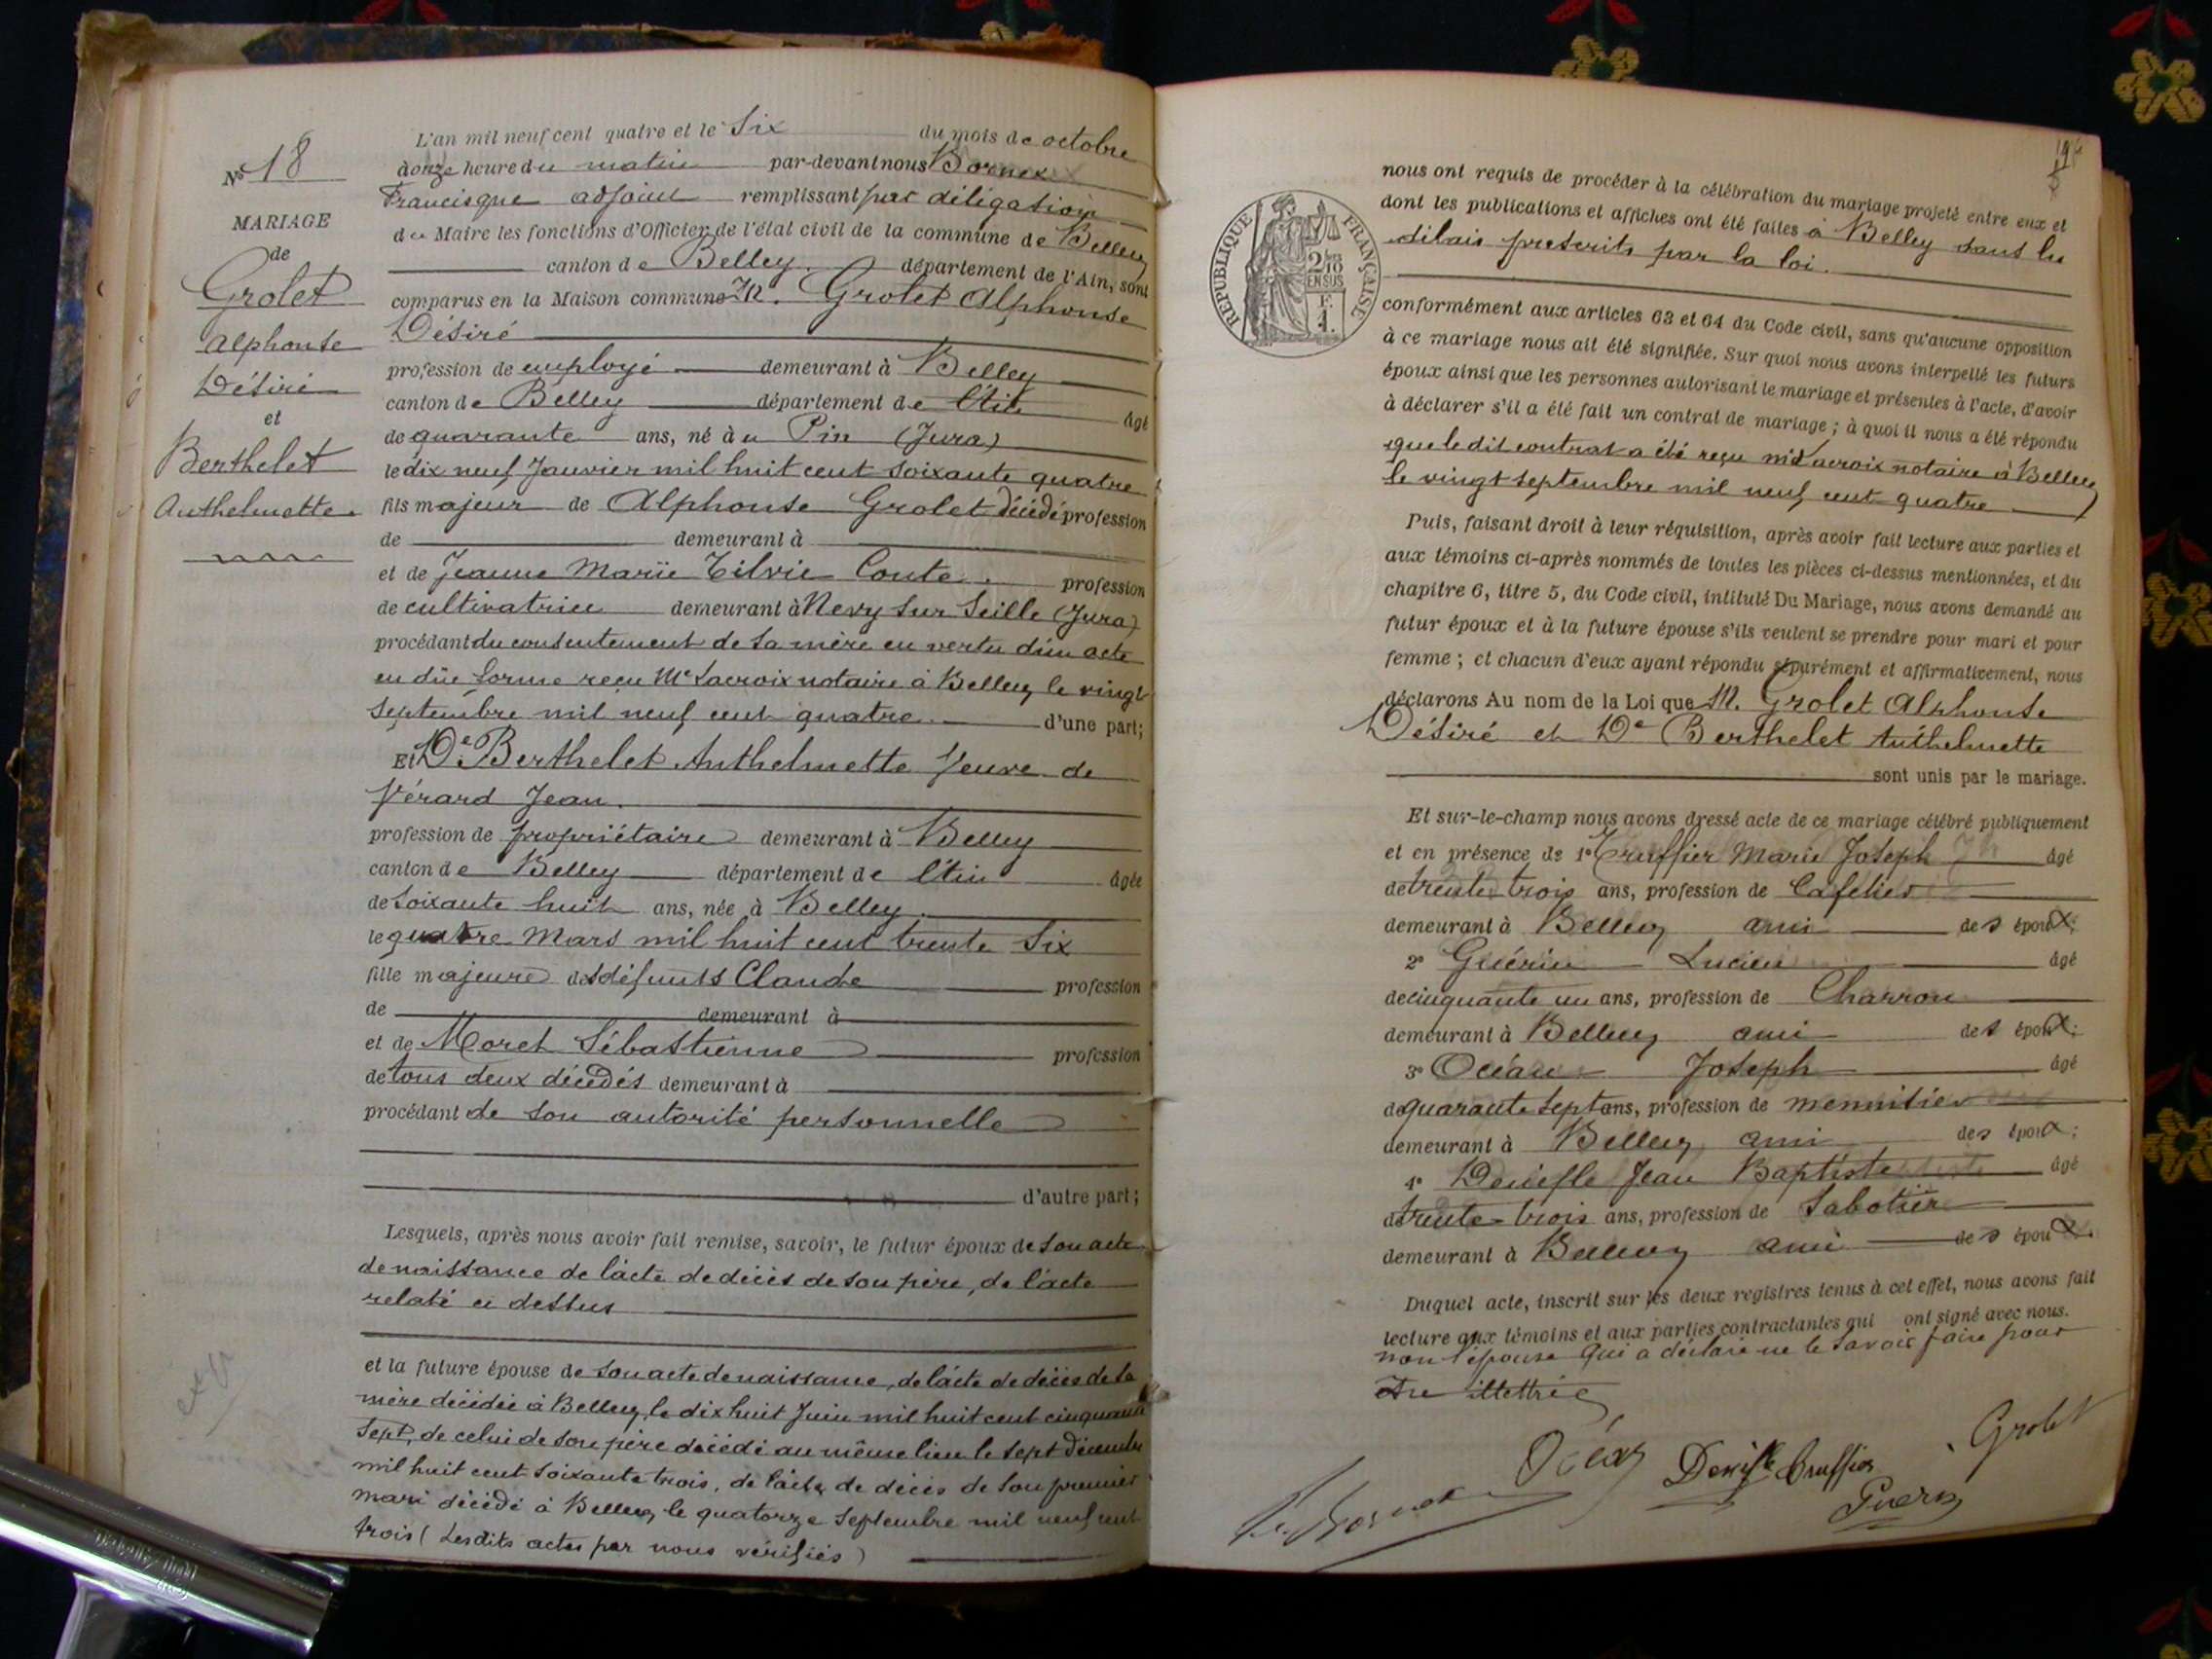 No 18
MARIAGE
de
Grolet
Alphonse
Désiré
et
Berthelet
Anthelmette.
L'an mil neuf cent quatre et le Six du mois de octobre
à onze heure du matin par-devant nous Bornex
Francisque adjoint remplissant par déligation
du Maire les fonctions d'Officier de l'état civil de la commune de Belley
canton de Belley. département de l'Ain, sont
comparus en la Maison commune M. Grolet Alphonse
Désiré
profession de employé demeurant à Belley
canton de Belley département de l'Ain âgé
de quarante ans, né à u Pin (Jura)
le dix neuf Janvier mil huit cent soixante quatre
fils majeur de Alphonse Grolet décédé profession
de demeurant à
et de Jeanne Marie Zilvie Conte. profession
de cultivatrice demeurant à Nevy sur Seille (Jura)
procédant du consentement de sa mère en vertu d'un acte
en dûe forme reçu Me Lacroix notaire à Belley le vingt
septembre mil neuf cent quatre. d'une part;
Et De Berthelet Anthelmette Veuve de
Vérard Jean.
profession de propriétaire demeurant à Belley
canton de Belley département de l'Ain âgée
de soixante huit ans, née à Belley.
le quatre Mars mil huit cent trente Six
fille majeure des défunts Claude profession
de demeurant à
et de Moret Sébastienne profession
de tous deux décédés demeurant à
procédant de son autorité personnelle
d'autre part;
Lesquels, après nous avoir fait remise, savoir, le futur époux de son acte
de naissance de l'acte de décès de son père, de l'acte
relaté ci dessus
et la future épouse de son acte de naissance, de l'acte de décès de sa
mère décédée à Belley, le dix huit Juin mil huit cent cinquante
Sept, de celui de son père décédé au même lieu le sept décembre
mil huit cent soixante trois, de l'acte de décès de son premier
mari décédé à Belley, le quatorze Septembre mil neuf cent
trois (Lesdits actes par nous vérifiés)
RÉPUBLIQUE FRANÇAISE
2/10
EN SUS
nous ont requis de procéder à la célébration du mariage projeté entre eux et
dont les publications et affiches ont été faites à Belley dans les
délais prescrits par la loi.
conformément aux articles 63 et 64 du Code civil, sans qu'aucune opposition
à ce mariage nous ait été signifiée. Sur quoi nous avons interpellé les futurs
époux ainsi que les personnes autorisant le mariage et présentes à l'acte, d'avoir
à déclarer s'il a été fait un contrat de mariage; à quoi il nous a été répondu
que le dit contrat a été reçu Me Lacroix notaire à Belley
le vingt septembre mil neuf cent quatre
Puis, faisant droit à leur réquisition, après avoir fait lecture aux parties et
aux témoins ci-après nommés de toutes les pièces ci-dessus mentionnées, et du
chapitre 6, titre 5, du Code civil, intitulé Du Mariage, nous avons demandé au
futur époux et à la future épouse s'ils veulent se prendre pour mari et pour
femme; et chacun d'eux ayant répondu séparément et affirmativement, nous
déclarons Au nom de la Loi que M. Grolet Alphonse
Désiré et De Berthelet Anthelmette
sont unis par le mariage.
Et sur-le-champ nous avons dressé acte de ce mariage célébré publiquement
et en présence de 1° Truffier Marie Joseph âgé
de trente trois ans, profession de Cafetier
demeurant à Belley ami des époux;
2° Guérin Lucien âgé
de cinquante un ans, profession de Charron
demeurant à Belley ami des époux;
3° Joseph âgé
de quarante Sept ans, profession de mennisier
demeurant à Belley ami des époux;
4° Jean Baptiste âgé
de trente-trois ans, profession de Sabotier
demeurant à Belley ami des époux.
Duquel acte, inscrit sur les deux registres tenus à cet effet, nous avons fait
lecture aux témoins et aux parties contractantes qui ont signé avec nous.
non l'épouse qui a déclaré ne le savoir faire pour
être illettrée
Truffier Grolet
Guerin